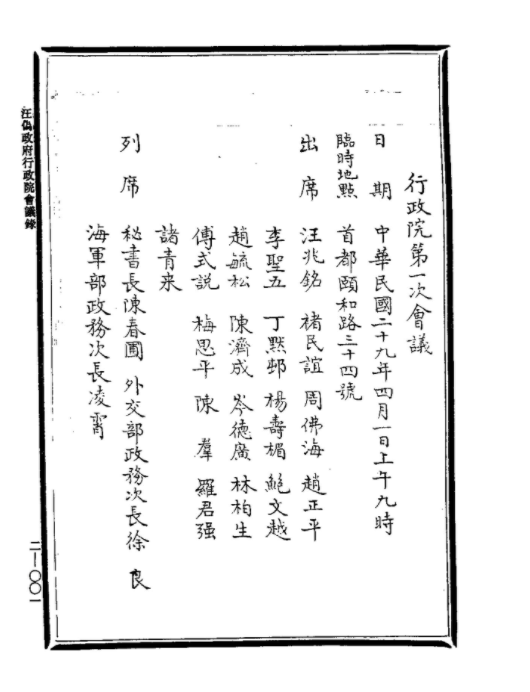 行政院第一次會議
日期 中華民國二十九年四月一日上午九時
臨時地點 首都頤和路三十四號
出席 汪兆銘 褚民誼 周佛海 趙正平
李聖五 丁默邨 楊壽楣 鮑文越
趙毓松 陳濟成 岑德廣 林柏生
傅式説 梅思平 陳羣 羅君强
諸青来
列席 秘書長陳春圃 外交部政務次長徐良
海軍部政務次長凌霄
汪偽政府行政院會議錄
二—〇〇一